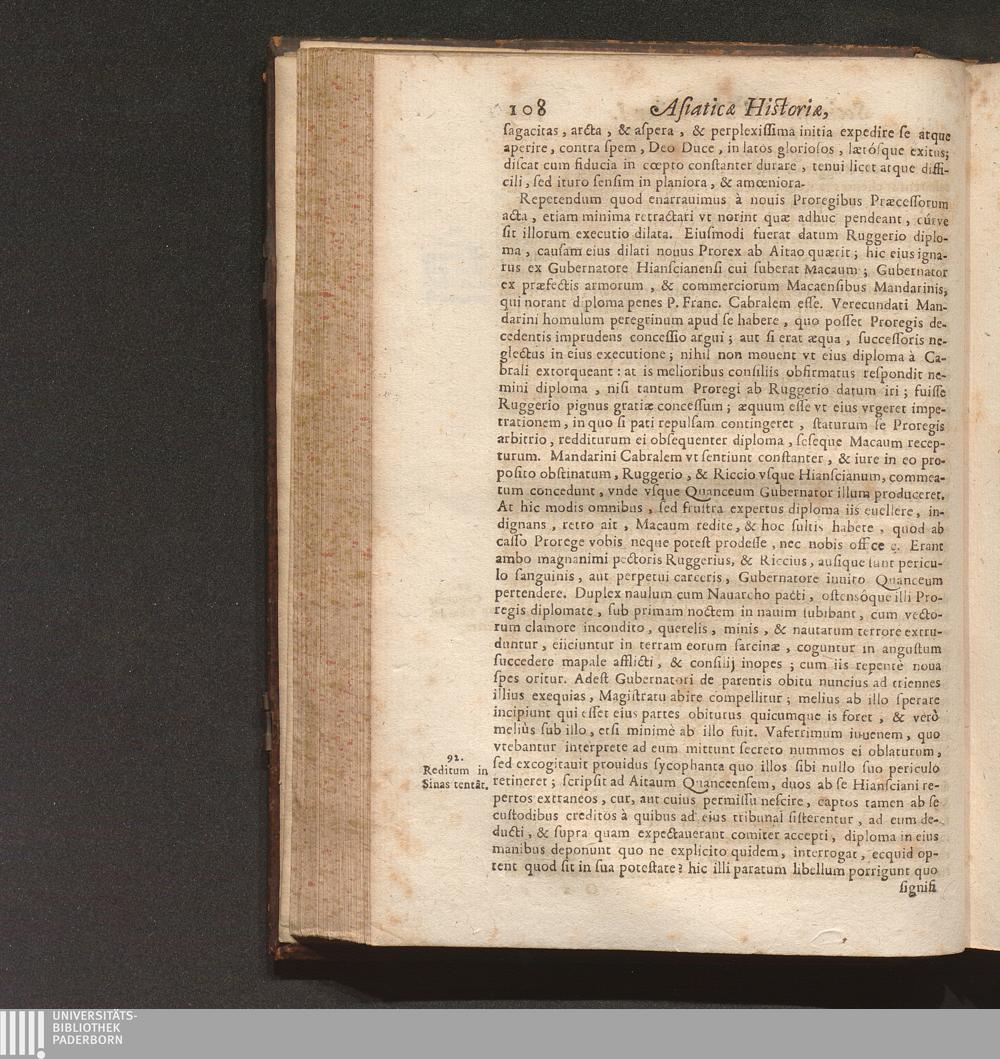 108 Asiaticæ Historiæ,
sagacitas, arcta, & aspera, & perplexissima initia expedire se atque
aperire, contra spem, Deo Duce, in latos gloriosos, lætósque exitus;
discat cum fiducia in cœpto constanter durare, tenui licet atque diffi-
cili, sed ituro sensim in planiora, & amœniora.
Repetendum quod enarrauimus à nouis Proregibus Præcessorum
acta, etiam minima retractari vt norint quæ adhuc pendeant, cúrve
sit illorum executio dilata. Eiusmodi fuerat datum Ruggerio diplo-
ma, causam eius dilati nouus Prorex ab Aitao quærit; hic eius igna-
rus ex Gubernatore Hianscianensi cui suberat Macaum; Gubernator
ex præfectis armorum, & commerciorum Macaensibus Mandarinis,
qui norant diploma penes P. Franc. Cabralem esse. Verecundati Man-
darini homulum peregrinum apud se habere, quo posset Proregis de-
cedentis imprudens concessio argui; aut si erat æqua, successoris ne-
glectus in eius executione; nihil non mouent vt eius diploma à Ca-
brali extorqueant: at is melioribus consiliis obfirmatus respondit ne-
mini diploma, nisi tantum Proregi ab Ruggerio datum iri; fuisse
Ruggerio pignus gratiæ concessum; æquum esse vt eius vrgeret impe-
trationem, in quo si pati repulsam contingeret, staturum se Proregis
arbitrio, redditurum ei obsequenter diploma, seseque Macaum recep-
turum. Mandarini Cabralem vt sentiunt constanter, & iure in eo pro-
posito obstinatum, Ruggerio, & Riccio vsque Hianscianum, commea-
tum concedunt, vnde vsque Quanceum Gubernator illum produceret.
At hic modis omnibus, sed frustra expertus diploma iis euellere, in-
dignans, retro ait, Macaum redite, & hoc sultis habete, quod ab
casso Prorege vobis neque potest prodesse, nec nobis officere. Erant
ambo magnanimi pectoris Ruggerius, & Riccius, ausique sunt pericu-
lo sanguinis, aut perpetui carceris, Gubernatore inuito Quanceum
pertendere. Duplex naulum cum Nauarcho pacti, ostensôque illi Pro-
regis diplomate, sub primam noctem in nauim subibant, cum vecto-
rum clamore incondito, querelis, minis, & nautarum terrore extru-
duntur, eiiciuntur in terram eorum sarcinæ, coguntur in angustum
succedere mapale afflicti, & consilij inopes; cum iis repentè noua
spes oritur. Adest Gubernatori de parentis obitu nuncius ad triennes
illius exequias, Magistratu abire compellitur; melius ab illo sperare
incipiunt qui esset eius partes obiturus quicumque is foret, & verò
meliùs sub illo, etsi minimè ab illo fuit. Vaferrimum iuuenem, quo
vtebantur interprete ad eum mittunt secreto nummos ei oblaturum,
92.
Reditum in
Sinas tentãt.
sed excogitauit prouidus sycophanta quo illos sibi nullo suo periculo
retineret; scripsit ad Aitaum Quanceensem, duos ab se Hiansciani re-
pertos extraneos, cur, aut cuius permissu nescire, captos tamen ab se
custodibus creditos à quibus ad eius tribunal sisterentur, ad eum de-
ducti, & supra quam expectauerant comiter accepti, diploma in eius
manibus deponunt quo ne explicito quidem, interrogat, ecquid op-
tent quod sit in sua potestate? hic illi paratum libellum porrigunt quo
signifi
UNIVERSITÄTS-
BIBLIOTHEK
PADERBORN